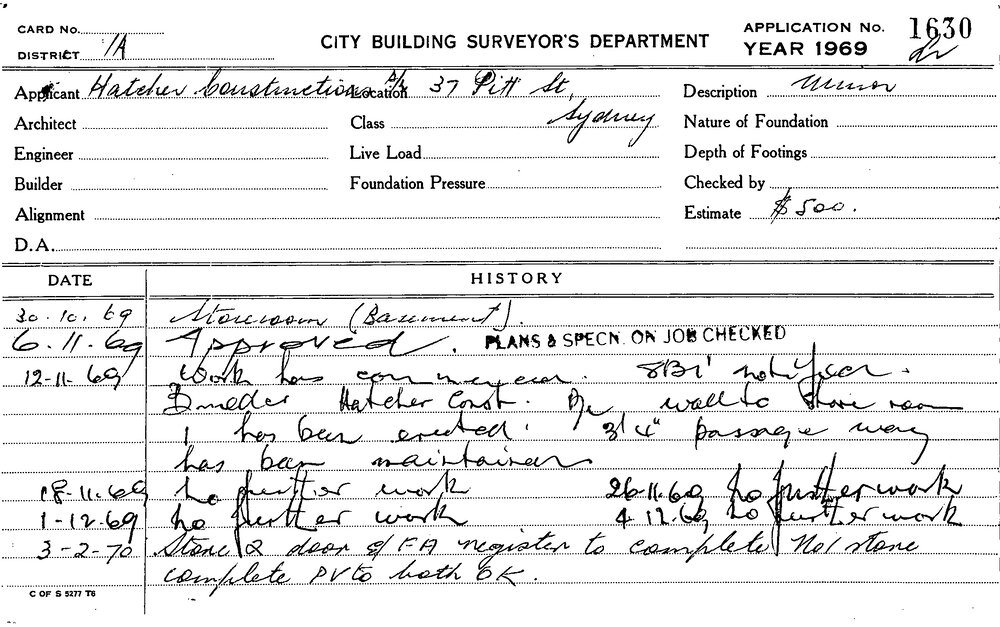 CARD No.
DISTRICT 1A
CITY BUILDING SURVEYOR'S DEPARTMENT
APPLICATION No. 1630
YEAR 1969
Applicant Hatcher Constructions P/L Location 37 Pitt St, Sydney
Description Minor
Architect
Class
Nature of Foundation
Engineer
Live Load
Depth of Footings
Builder
Foundation Pressure
Checked by
Alignment
Estimate $500.
D.A.
DATE HISTORY
30.10.69 Storeroom (Basement).
6.11.69 Approved. PLANS & SPECN. ON JOB CHECKED
12-11-69 Work has commenced. notified.
Hatcher Const. wall to store room
1 has been erected. 3'4" passage way
has been maintained
18-11-69 no further work 26-11-69 no further work
1-12-69 no further work 4.12.69 no further work
3-2-70 Store 2 door & FA register to complete No1 store
complete PV to both OK.
C OF S 5277 T6